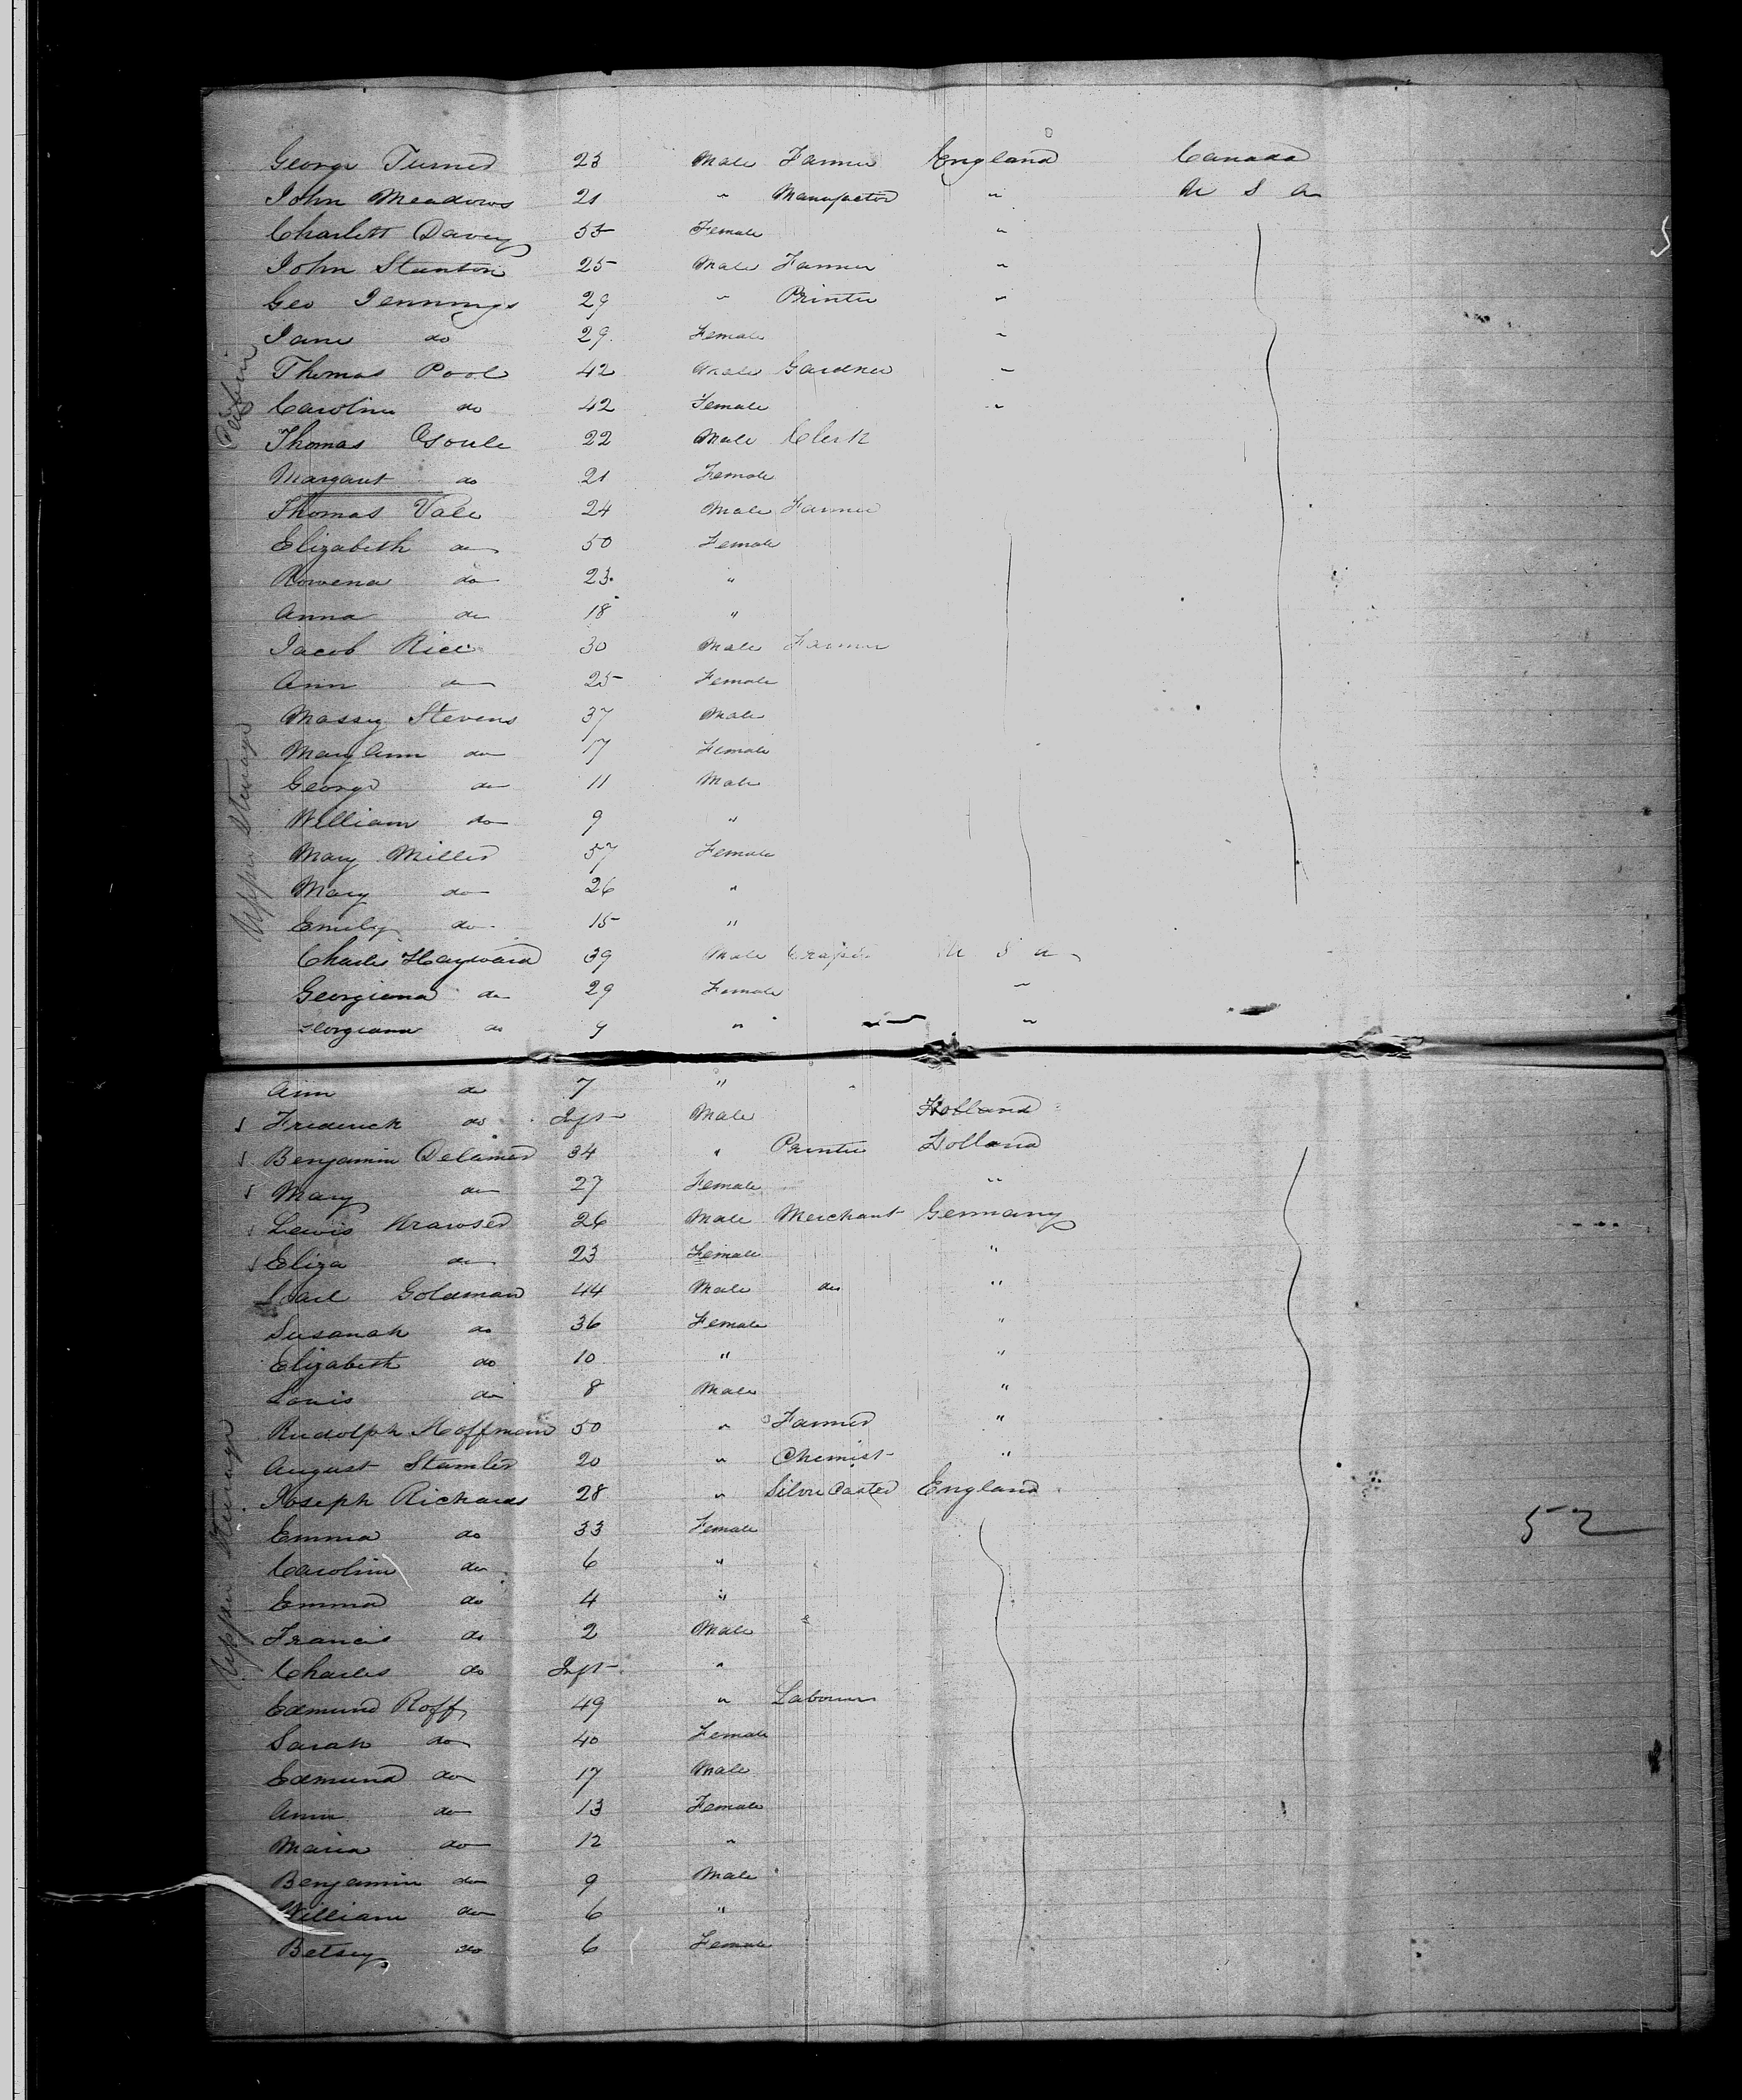 George Turner 23 Male Farmer England Canada
John Meadows 21 " Manufactor " U S A
Charlott Davey 55 Female "
John Stanton 25 Male Farmer "
Geo Jennings 29 " Printer "
Jane do 29 Female "
Thomas Pool 42 Male Gardner "
Caroline do 42 Female "
Thomas 22 Male Clerk
Margaret do 21 Female
Thomas Vale 24 Male Farmer
Elizabeth do 50 Female
Rowena do 23 "
Anna do 18 "
Jacob Rice 30 Male Farmer
Ann do 25 Female
Massey Stevens 37 Male
Mary Ann do 17 Female
George do 11 Male
William do 9 "
Upper Steerage
Mary Miller 57 Female
Mary do 26 "
Emily do 15 "
Charles Hayward 39 Male U S A
Georgiana do 29 Female "
Georgiana do 9 " "
Ann do 7 "
Frederick do Inft Male Holland
Benjamin Delamer 34 " Printer Holland
Mary do 27 Female "
Lewis Krawser 26 Male Merchant Germany
Eliza do 23 Female "
Goldman 44 Male do "
Susanah do 36 Female "
Elizabeth do 10 " "
Louis do 8 Male "
Rudolph Hoffman 50 " Farmer "
August Stamler 20 " Chemist "
Joseph Richards 28 " Silver Caster England
Emma do 33 Female
52
Caroline do 6 "
Emma do 4 "
Francis do 2 Male
Upper Steerage
Charles do Inft "
Edmund Roff 49 " Labourer
Sarah do 40 Female
Edmund do 17 Male
Ann do 13 Female
Maria do 12 "
Benjamin do 9 Male
William do 6 "
Betsey do 6 Female